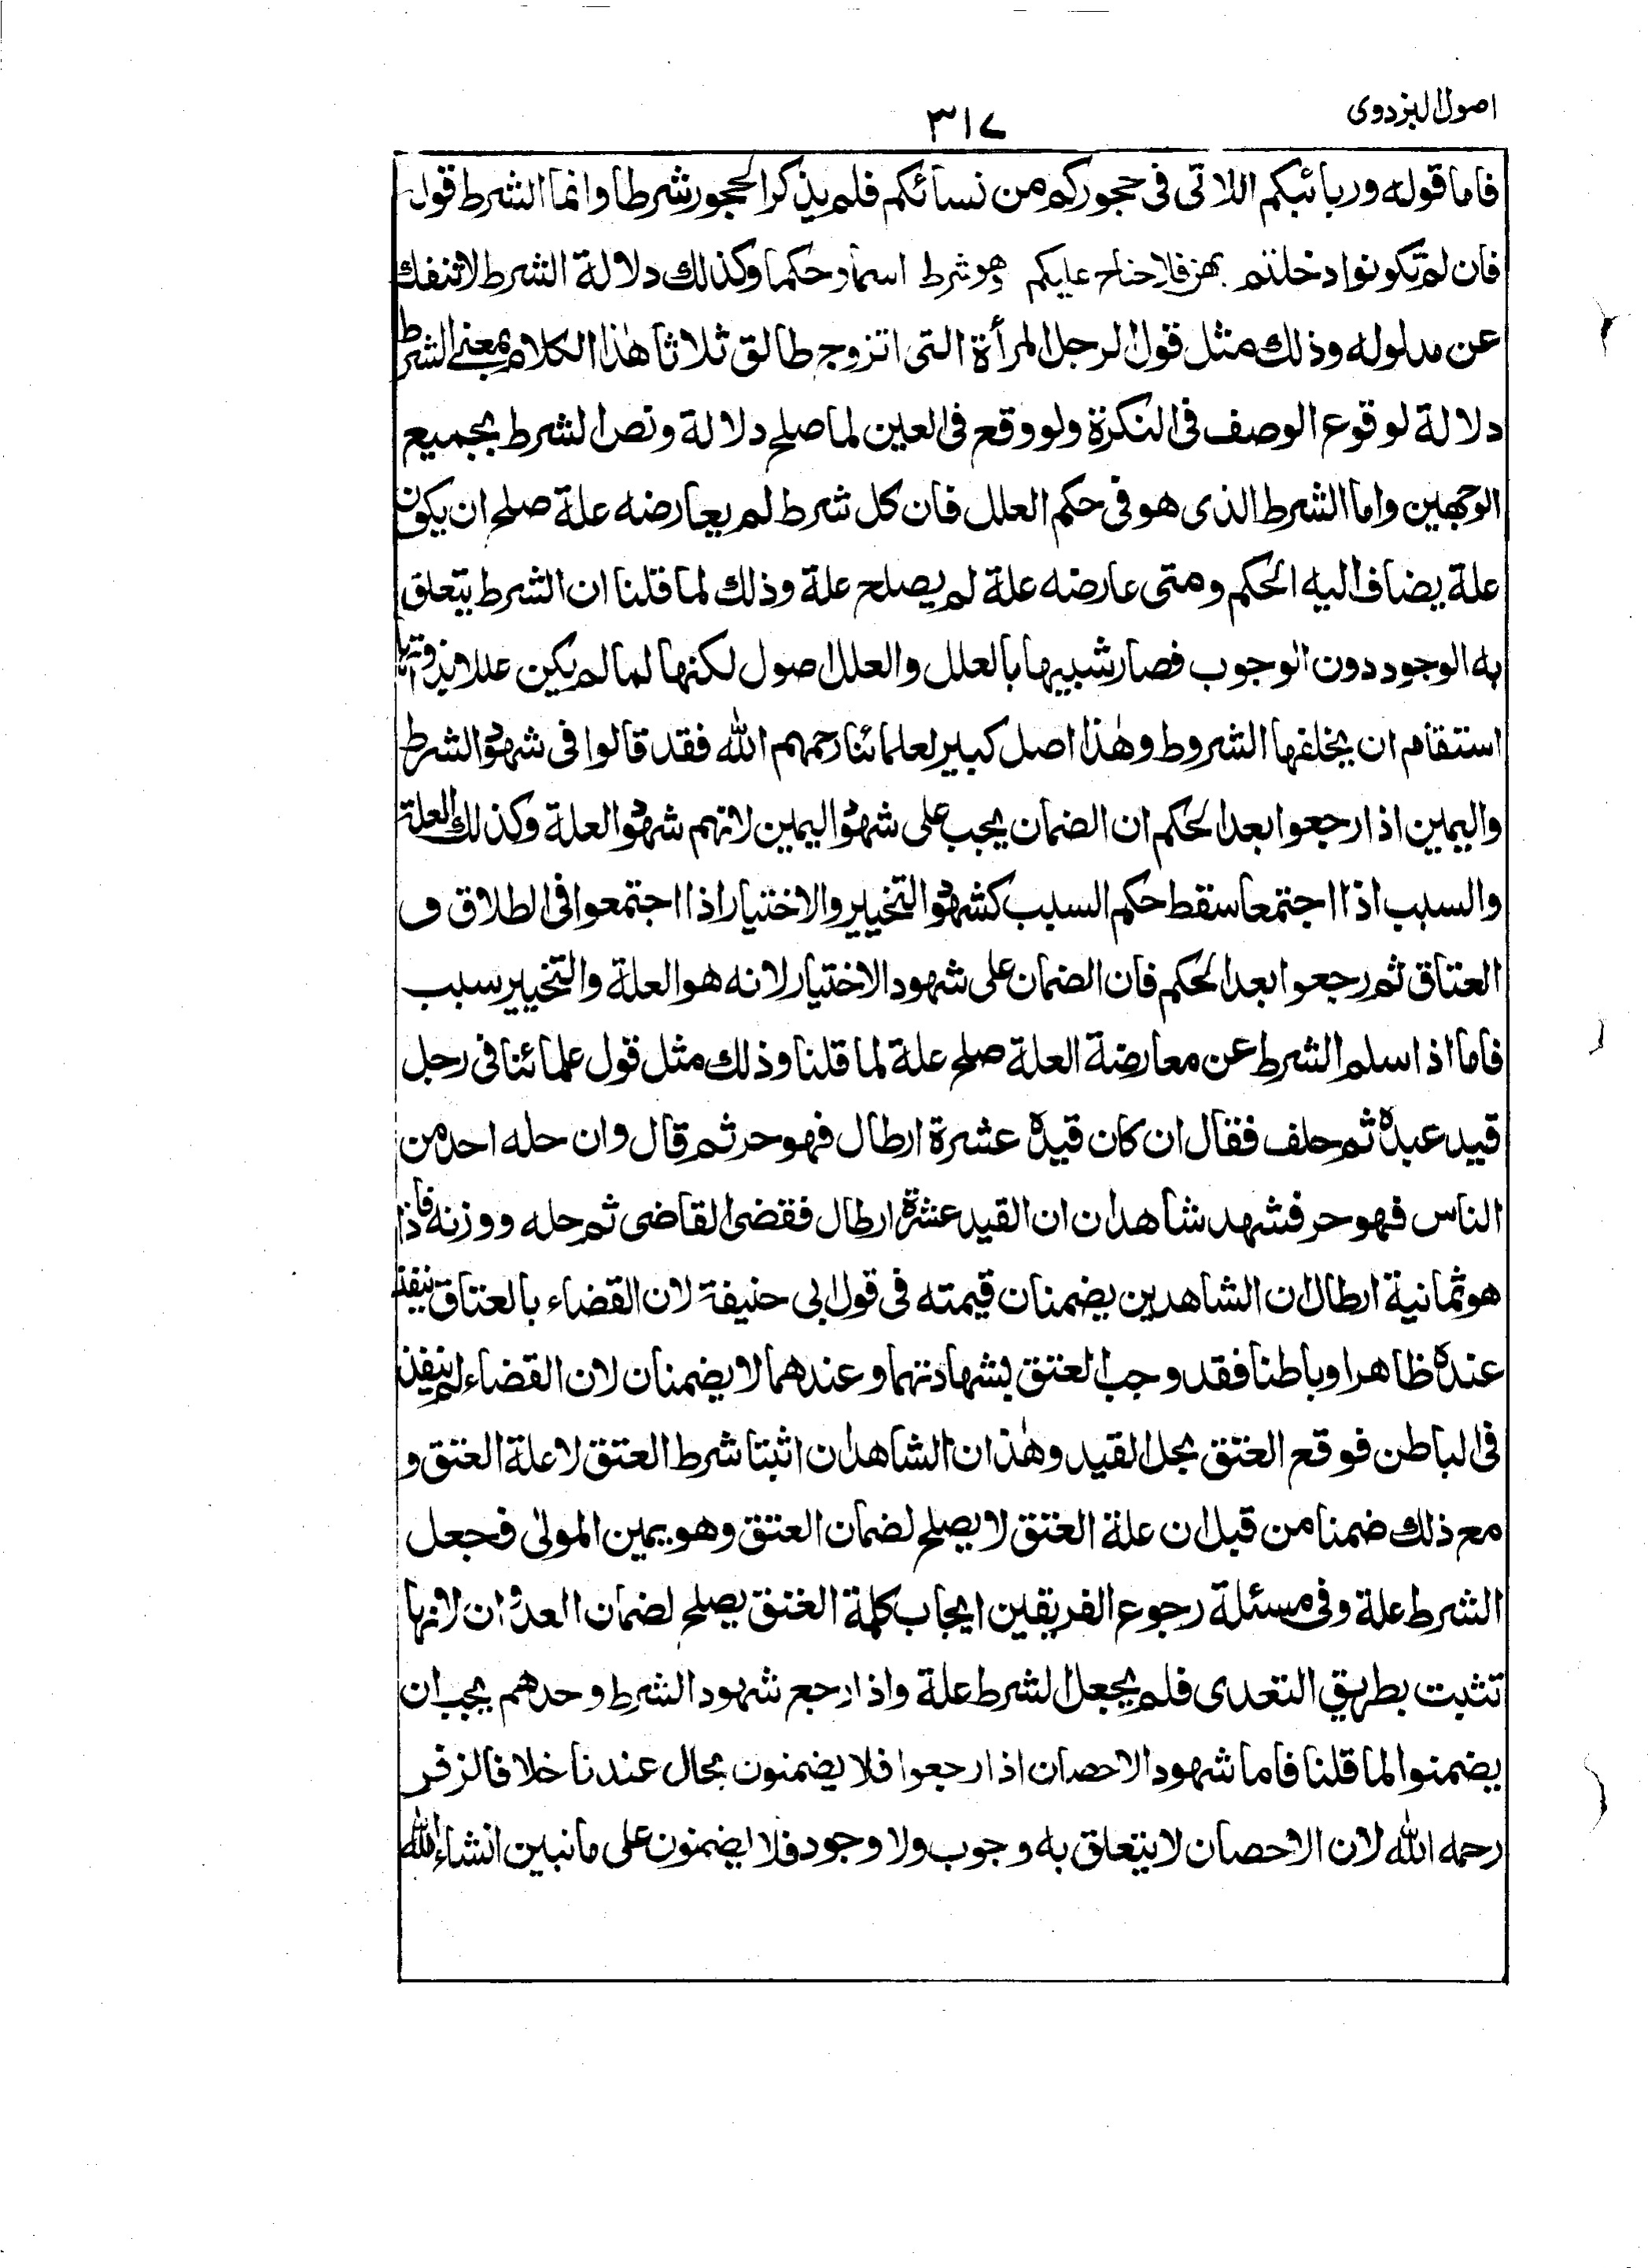 اصول البزدوى
٣١٧
فاما قوله وربائبكم اللاتى فى حجوركم من نسائكم فلم يذكر الحجور شرطا وانما الشرط قول
فان لم تكونوا دخلتم بهن فلا جناح عليكم هو شرط اسما وحكما وكذلك دلالة الشرط لا تنفك
عن مدلوله وذلك مثل قول الرجل المرأة التى اتزوج طالق ثلاثا هذا الكلام بمعنى الشرط
دلالة لوقوع الوصف فى النكرة ولو وقع فى العين لما صلح دلالة ونص الشرط بجميع
الوجهين واما الشرط الذى هو فى حكم العلل فان كل شرط لم يعارضه علة صلح ان يكون
علة يضاف اليه الحكم ومتى عارضه علة لم يصلح علة وذلك لما قلنا ان الشرط يتعلق
به الوجود دون الوجوب فصار شبيها بالعلل والعلل اصول لكنها لما لم يكن عللا بذواتها
استقام ان يخلفها الشروط وهذا اصل كبير لعلمائنا رحمهم الله فقد قالوا فى شهود الشرط
واليمين اذا رجعوا بعد الحكم ان الضمان يجب على شهود اليمين لانهم شهود العلة وكذلك العلة
والسبب اذا اجتمعا سقط حكم السبب كشهود التخيير والاختيار اذا اجتمعوا فى الطلاق و
العتاق ثم رجعوا بعد الحكم فان الضمان على شهود الاختيار لانه هو العلة والتخيير سبب
فاما اذا سلم الشرط عن معارضة العلة صلح علة لما قلنا وذلك مثل قول علمائنا فى رجل
قيد عبده ثم حلف فقال ان كان قيده عشرة ارطال فهو حر ثم قال وان حله احد من
الناس فهو حر فشهد شاهدان ان القيد عشرة ارطال فقضى القاضى ثم حله ووزنه فاذا
هو ثمانية ارطال ان الشاهدين يضمنان قيمته فى قول ابى حنيفة لان القضاء بالعتاق ينفذ
عنده ظاهرا وباطنا فقد وجب العتق بشهادتهما وعندهما لا يضمنان لان القضاء لم ينفذ
فى الباطن فوقع العتق بحل القيد وهذان الشاهدان اثبتا شرط العتق لا علة العتق و
مع ذلك ضمنا من قبل ان علة العتق لا يصلح لضمان العتق وهو يمين المولى فجعل
الشرط علة وفى مسئلة رجوع الفريقين ايجاب كلمة العتق يصلح لضمان العدوان لانها
تثبت بطريق التعدى فلم يجعل الشرط علة واذا رجع شهود الشرط وحدهم يجب ان
يضمنوا لما قلنا فاما شهود الاحصان اذا رجعوا فلا يضمنون بحال عندنا خلافا لزفر
رحمه الله لان الاحصان لا يتعلق به وجوب ولا وجود فلا يضمنون على ما نبين انشاء الله